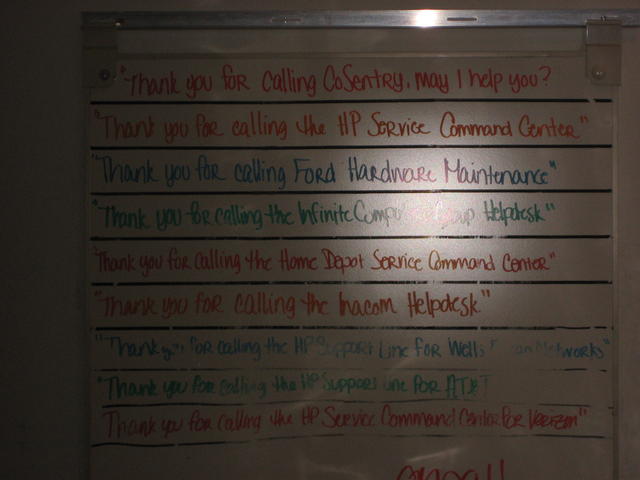 "Thank you for calling CoSentry, may I help you?
"Thank you for calling the HP Service Command Center"
"Thank you for calling Ford Hardware Maintenance"
"Thank you for calling the Infinite Computer Group Helpdesk"
"Thank you for calling the Home Depot Service Command Center"
"Thank you for calling the Inacom Helpdesk"
"Thank you for calling the HP Support Line for Wells Networks"
"Thank you for calling the HP Support Line for AT&T
"Thank you for calling the HP Service Command Center for Verizon"